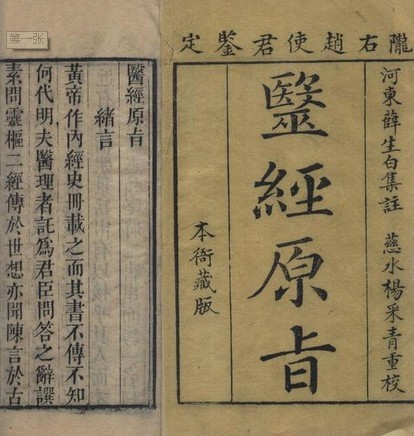 第一张
隴右趙使君鑒定
河東薛生白集註 慈水楊采青重校
醫經原旨
本衙藏版
醫經原旨
緒言
黃帝作內經史冊載之而其書不傳不知
何代明夫醫理者託為君臣問答之辭譔
素問靈樞二經傳於世想亦聞陳言於古